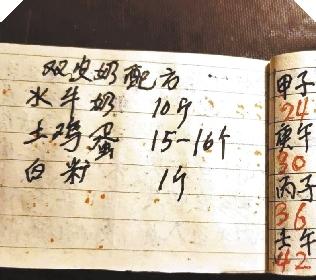 双皮奶配方
水牛奶 10斤
土鸡蛋 15-16个
白 1斤
甲子
24
庚午
30
丙子
36
壬午
42